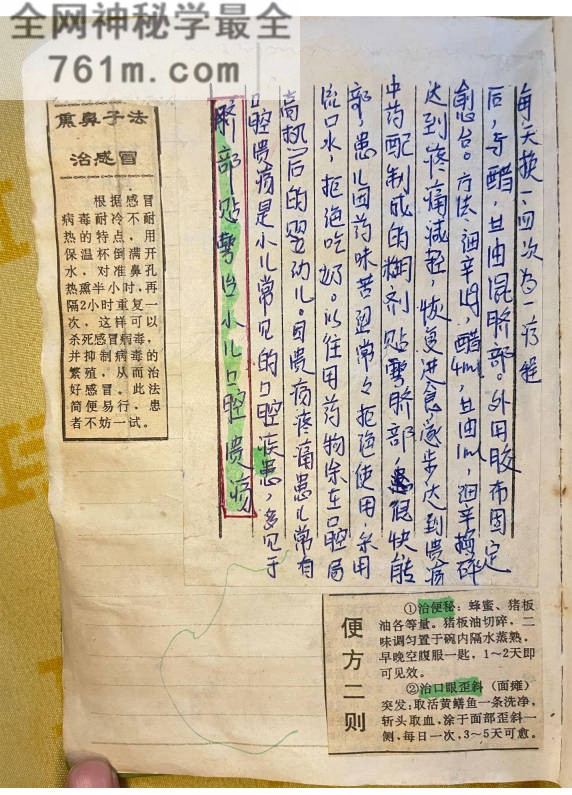 全网神秘学最全
761m.com
熏鼻子法
治感冒
根据感冒
病毒耐冷不耐
热的特点，用
保温杯倒满开
水，对准鼻孔
热熏半小时，再
隔2小时重复一
次，这样可以
杀死感冒病毒，
并抑制病毒的
繁殖，从而治
好感冒。此法
简便易行，患
者不妨一试。
脐部贴敷治小儿口腔溃疡
口腔溃疡是小儿常见的口腔疾患，多见于
高热后的婴幼儿。因溃疡疼痛患儿常有
流口水，拒绝吃奶。以往用药物涂在口腔局
部，患儿因药味苦涩常々拒绝使用，采用
中药配制成的糊剂贴敷脐部，患很快能
达到疼痛减轻，恢复进食逐步达到溃疡
愈合。方法：细辛，醋4ml，甘油1ml，细辛捣碎
后，与醋，甘油混脐部。外用胶布固定
每天换一、四次为一疗程
便方二则
①治便秘：蜂蜜、猪板
油各等量。猪板油切碎，二
味调匀置于碗内隔水蒸熟，
早晚空腹服一匙，1～2天即
可见效。
②治口眼歪斜（面瘫）
突发：取活黄鳝鱼一条洗净，
斩头取血，涂于面部歪斜一
侧，每日一次，3～5天可愈。